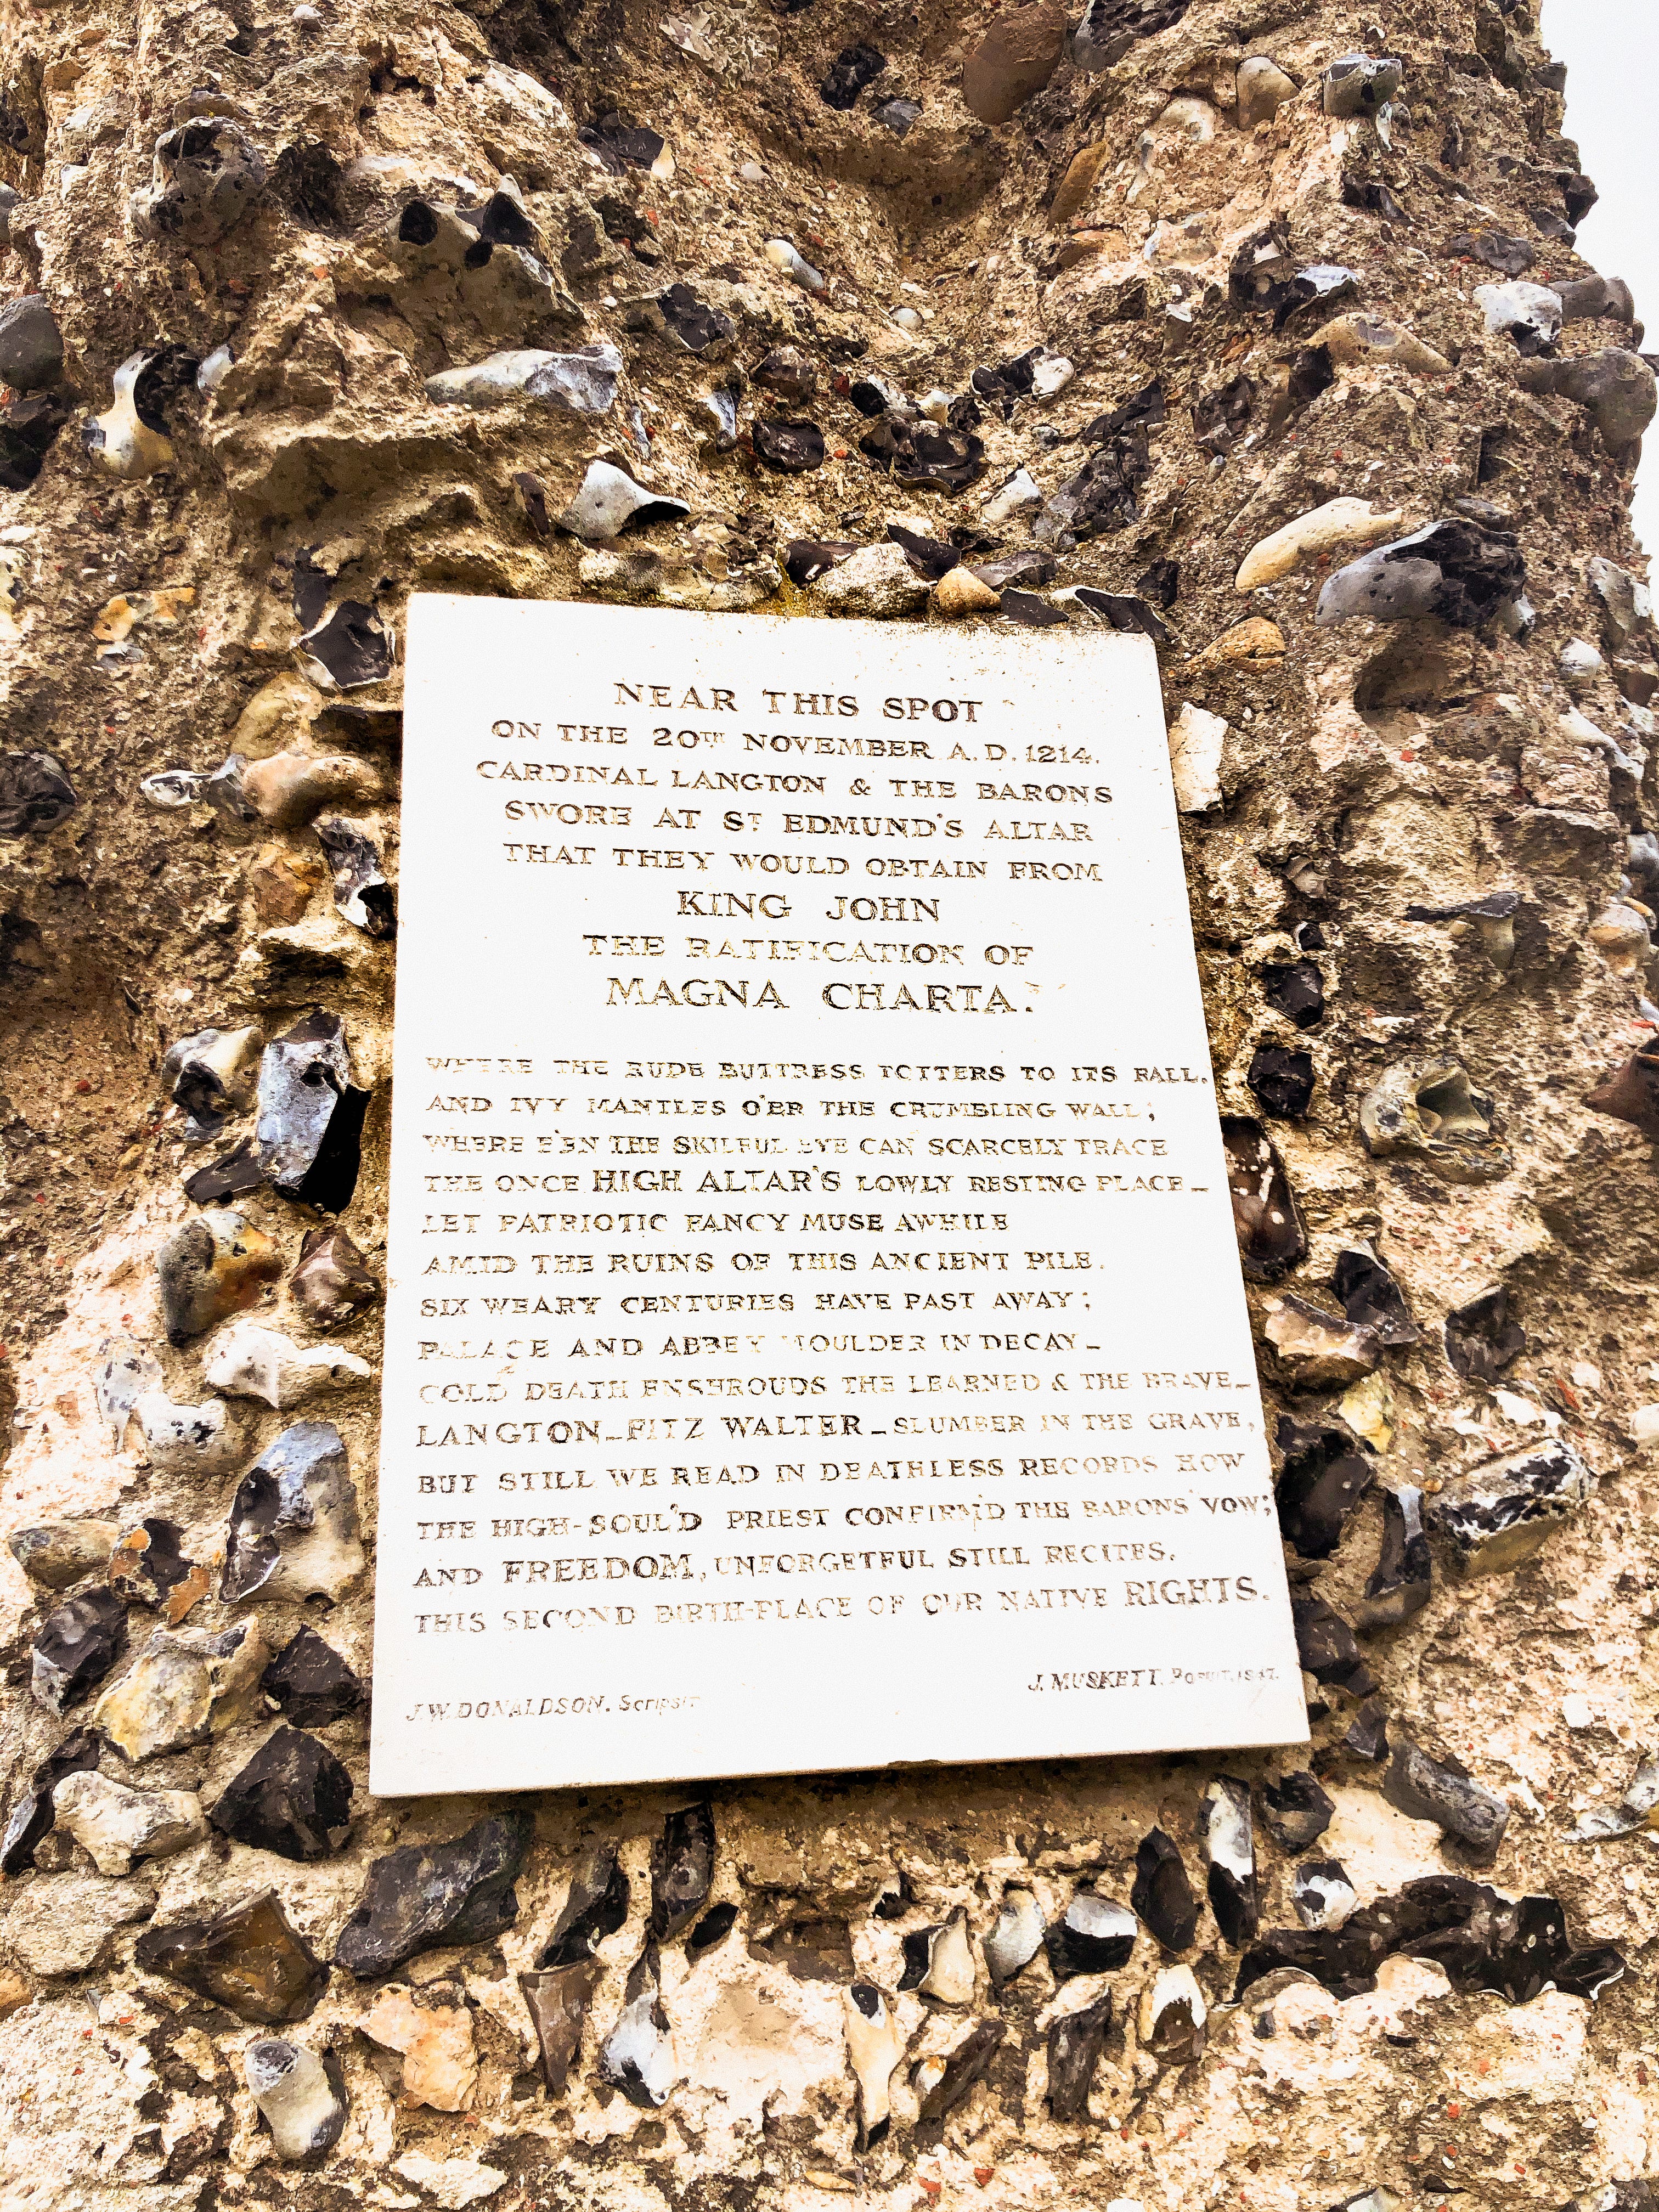 NEAR THIS SPOT
ON THE 20TH NOVEMBER A.D. 1214.
CARDINAL LANGTON & THE BARONS
SWORE AT ST EDMUND'S ALTAR
THAT THEY WOULD OBTAIN FROM
KING JOHN
THE RATIFICATION OF
MAGNA CHARTA.
WHERE THE RUDE BUTTRESS TOTTERS TO ITS FALL,
AND IVY MANTLES O'ER THE CRUMBLING WALL;
WHERE E'EN THE SKILFUL EYE CAN SCARCELY TRACE
THE ONCE HIGH ALTAR'S LOWLY RESTING PLACE_
LET PATRIOTIC FANCY MUSE AWHILE
AMID THE RUINS OF THIS ANCIENT PILE.
SIX WEARY CENTURIES HAVE PAST AWAY;
PALACE AND ABBEY MOULDER IN DECAY_
COLD DEATH ENSHROUDS THE LEARNED & THE BRAVE_
LANGTON_FITZ WALTER_SLUMBER IN THE GRAVE,
BUT STILL WE READ IN DEATHLESS RECORDS HOW
THE HIGH-SOUL'D PRIEST CONFIRM'D THE BARONS' VOW;
AND FREEDOM, UNFORGETFUL STILL RECITES,
THIS SECOND BIRTH-PLACE OF OUR NATIVE RIGHTS.
J.W. DONALDSON. Scripsit
J. MUSKETT. Posuit. 1847.